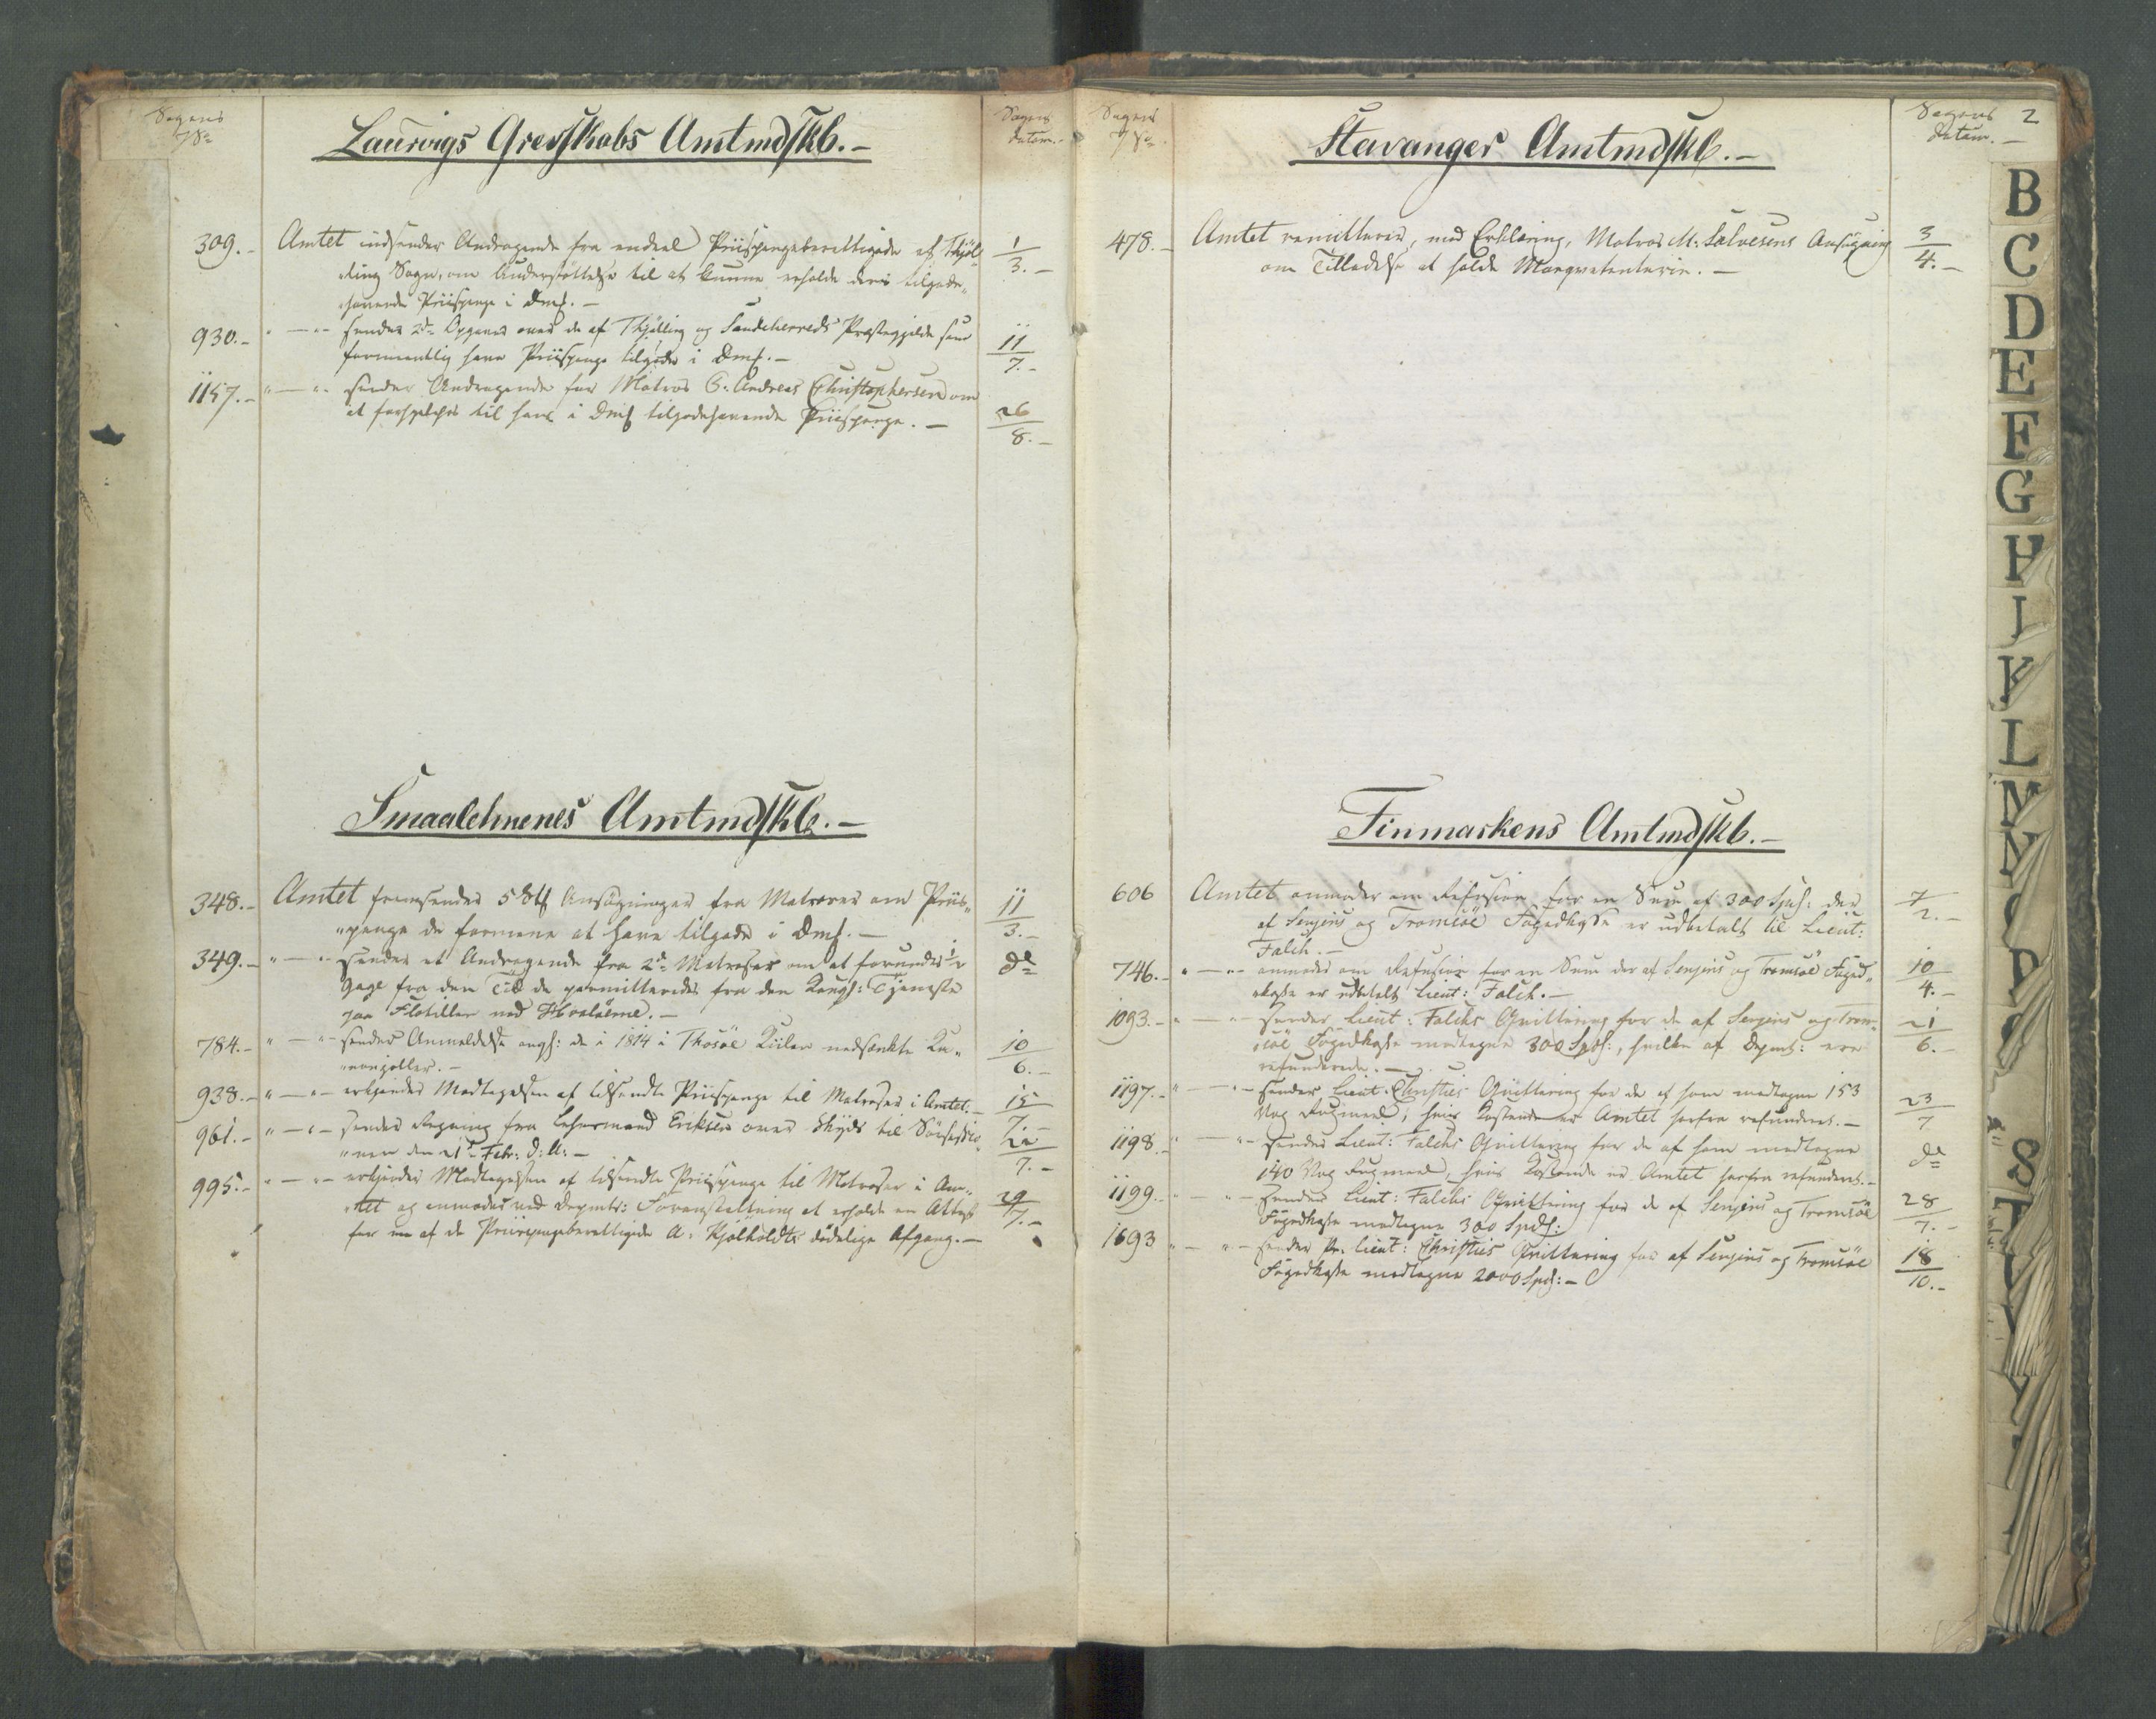 Sagens
No
Laurvigs Grevskabs Amtmdskb. –
Sagens
Datum. –
309. – Amtet indsender Andragende fra endeel Priispengeberettigede af Thjøl- 1/3. –
"ling Sogn, om Understøttelse til at kunne erholde deres tilgode„
"havende Priispenge i Dmf. –
930. – " — " – sender 2de Opgaver over de af Thjølling og Sandeherreds Præstegjelde som 11/7. –
formentlig have Priispenge tilgode i Dmf. –
1157. – " — " – sender Andragende for Matros C. Andreas Christophersen om 26/8. –
at forhjelpes til hans i Dmf tilgodehavende Priispenge. –
Smaalehnenes Amtmdskb. –
348. – Amtet fremsender 5 Stk Ansøgninger fra Matroser om Priis„ 11/3. –
"penge de formene at have tilgode i Dmf. –
349. – " — " – sender et Andragende fra 2de Matroser om at forundes 1/2 do
Gage fra den Tid de permitteredes fra den Kongl: Tjeneste
paa Flotillen ved Hvaløerne. –
784. – " — " – sender Anmeldelse angl: de i 1814 i Thosøe Kiilen nedsænkte Ka„ 10/6. –
"nonjoller. –
938. – " — " – erkjender Modtagelsen af tilsendte Priispenge til Matroser i Amtet. – 15/7. –
961. – " — " – sender Regning fra Lehnsmand Eriksen over Skyds til Søesessio„ 22/7. –
"nen den 21de Febr: d: A: –
995. – " — " – erkjender Modtagelsen af tilsendte Priispenge til Matroser i Am„ 29/7. –
"tet og anmoder ved Depmts: Foranstaltning at erholde en Attest
for en af de Priispengeberettigede A. Kjølholdts dødelige Afgang. –
Sagens
No
Stavanger Amtmdskb. –
Sagens
Datum. –
2
478. – Amtet remitterer, med Erklæring, Matros M. Salvesens Ansøgning 3/4. –
om Tilladelse at holde Marqvetenterie. –
Finmarkens Amtmdskb. –
606 Amtet anmoder om Refusion for en Sum af 300 Spd: der 7/2. –
af Senjens og Tromsøe Fogedkasse er udbetalt til Lieut:
Falch. –
746. – " — " – anmoder om Refusion for en Sum der af Senjens og Tromsøe Foged„ 10/4. –
"kasse er udbetalt Lieut: Falch. –
1093. – " — " – sender Lieut: Falchs Qvittering for de af Senjens og Trom„ 21/6. –
"søe Fogedkasse modtagne 300 Spd:, hvilke af Depmt: ere
refunderede. –
1197. – " — " – sender Lieut. Christies Qvittering for de af ham modtagne 153 23/7
Vog Rugmeel, hvis Kostende er Amtet herfra refunderet. –
1198. – " — " – sender Lieut: Falchs Qvittering for de af ham modtagne do
140 Vog Rugmeel, hvis Kostende er Amtet herfra refunderet. –
1199. – " — " – sender Lieut: Falchs Qvittering for de af Senjens og Tromsøe 28/7. –
Fogedkasse modtagne 300 Spd:
1693 " — " – sender Pr. Lieut: Christies Qvittering for af Senjens og Tromsøe 18/10. –
Fogedkasse modtagne 2000 Spd: –
B
C
D
E
F
G
H
I
K
L
M
N
O
P
S
T